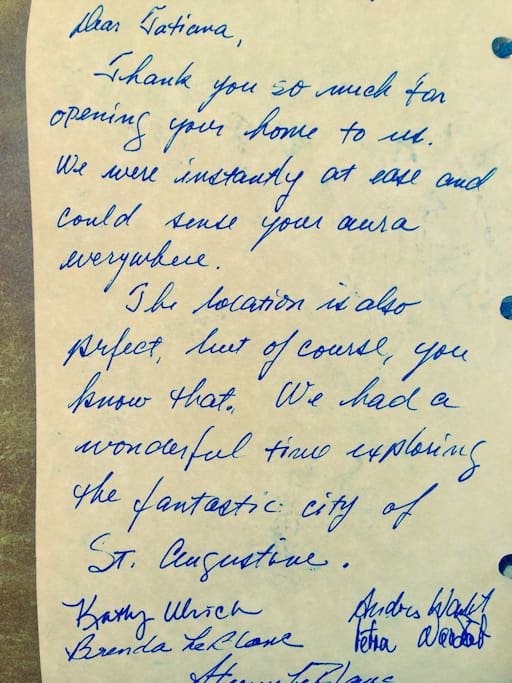 Dear Tatiana,
Thank you so much for
opening your home to us.
We were instantly at ease and
could sense your aura
everywhere.
The location is also
perfect, but of course, you
know that. We had a
wonderful time exploring
the fantastic city of
St. Augustine.
Kathy Ulrich
Brenda LeBlanc
Petra
LeBlanc